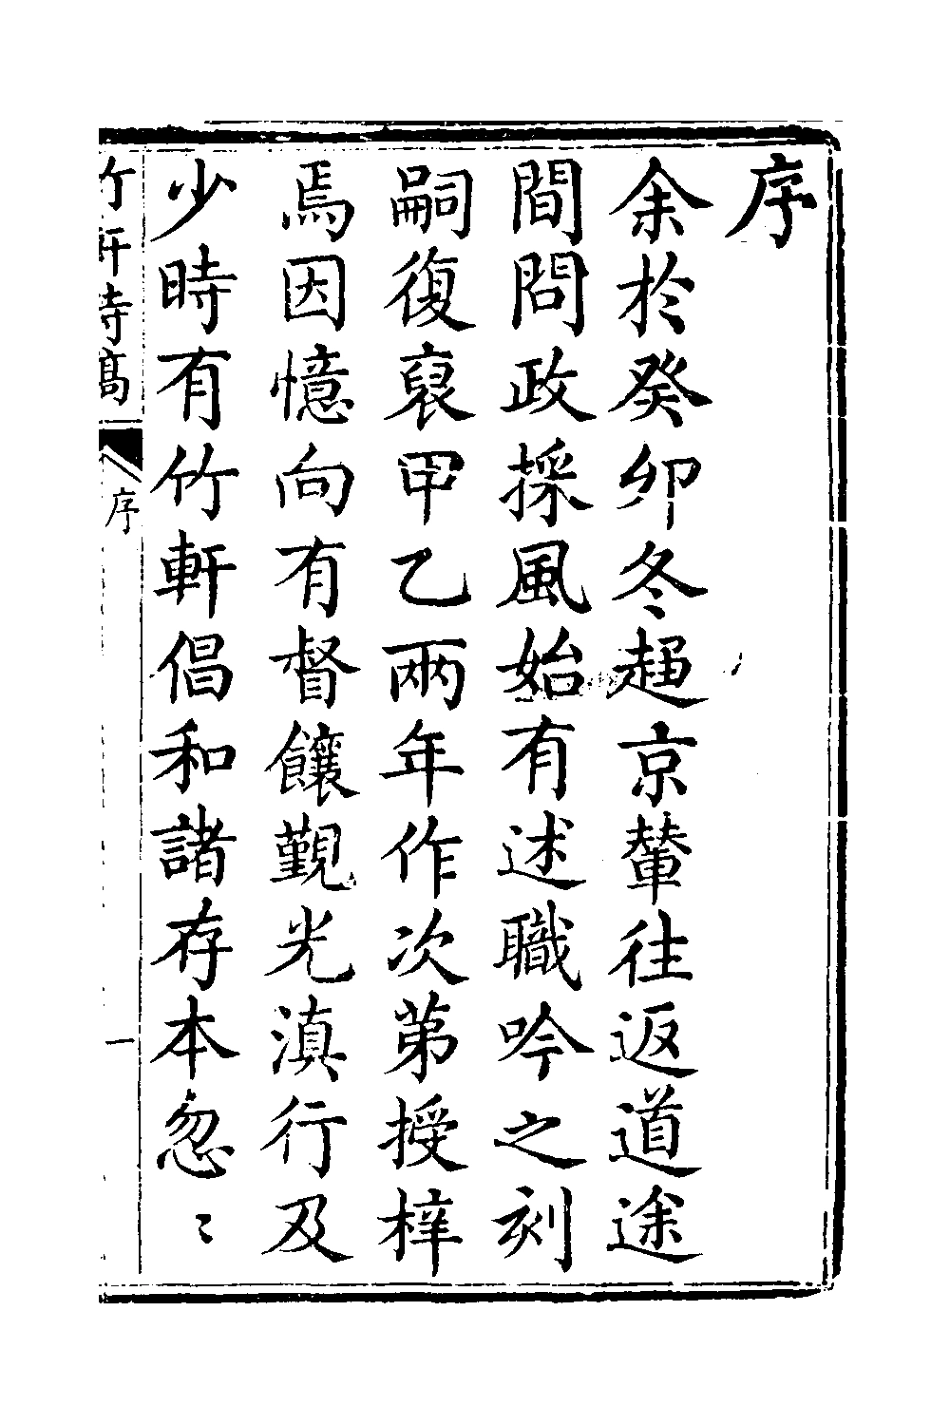 序
余於癸卯冬趨京輦往返道途
間問政採風始有述職吟之刻
嗣復裒甲乙兩年作次第授梓
焉因憶向有督饟觀光滇行及
少時有竹軒倡和諸存本忽〻
竹軒詩槀
序
一